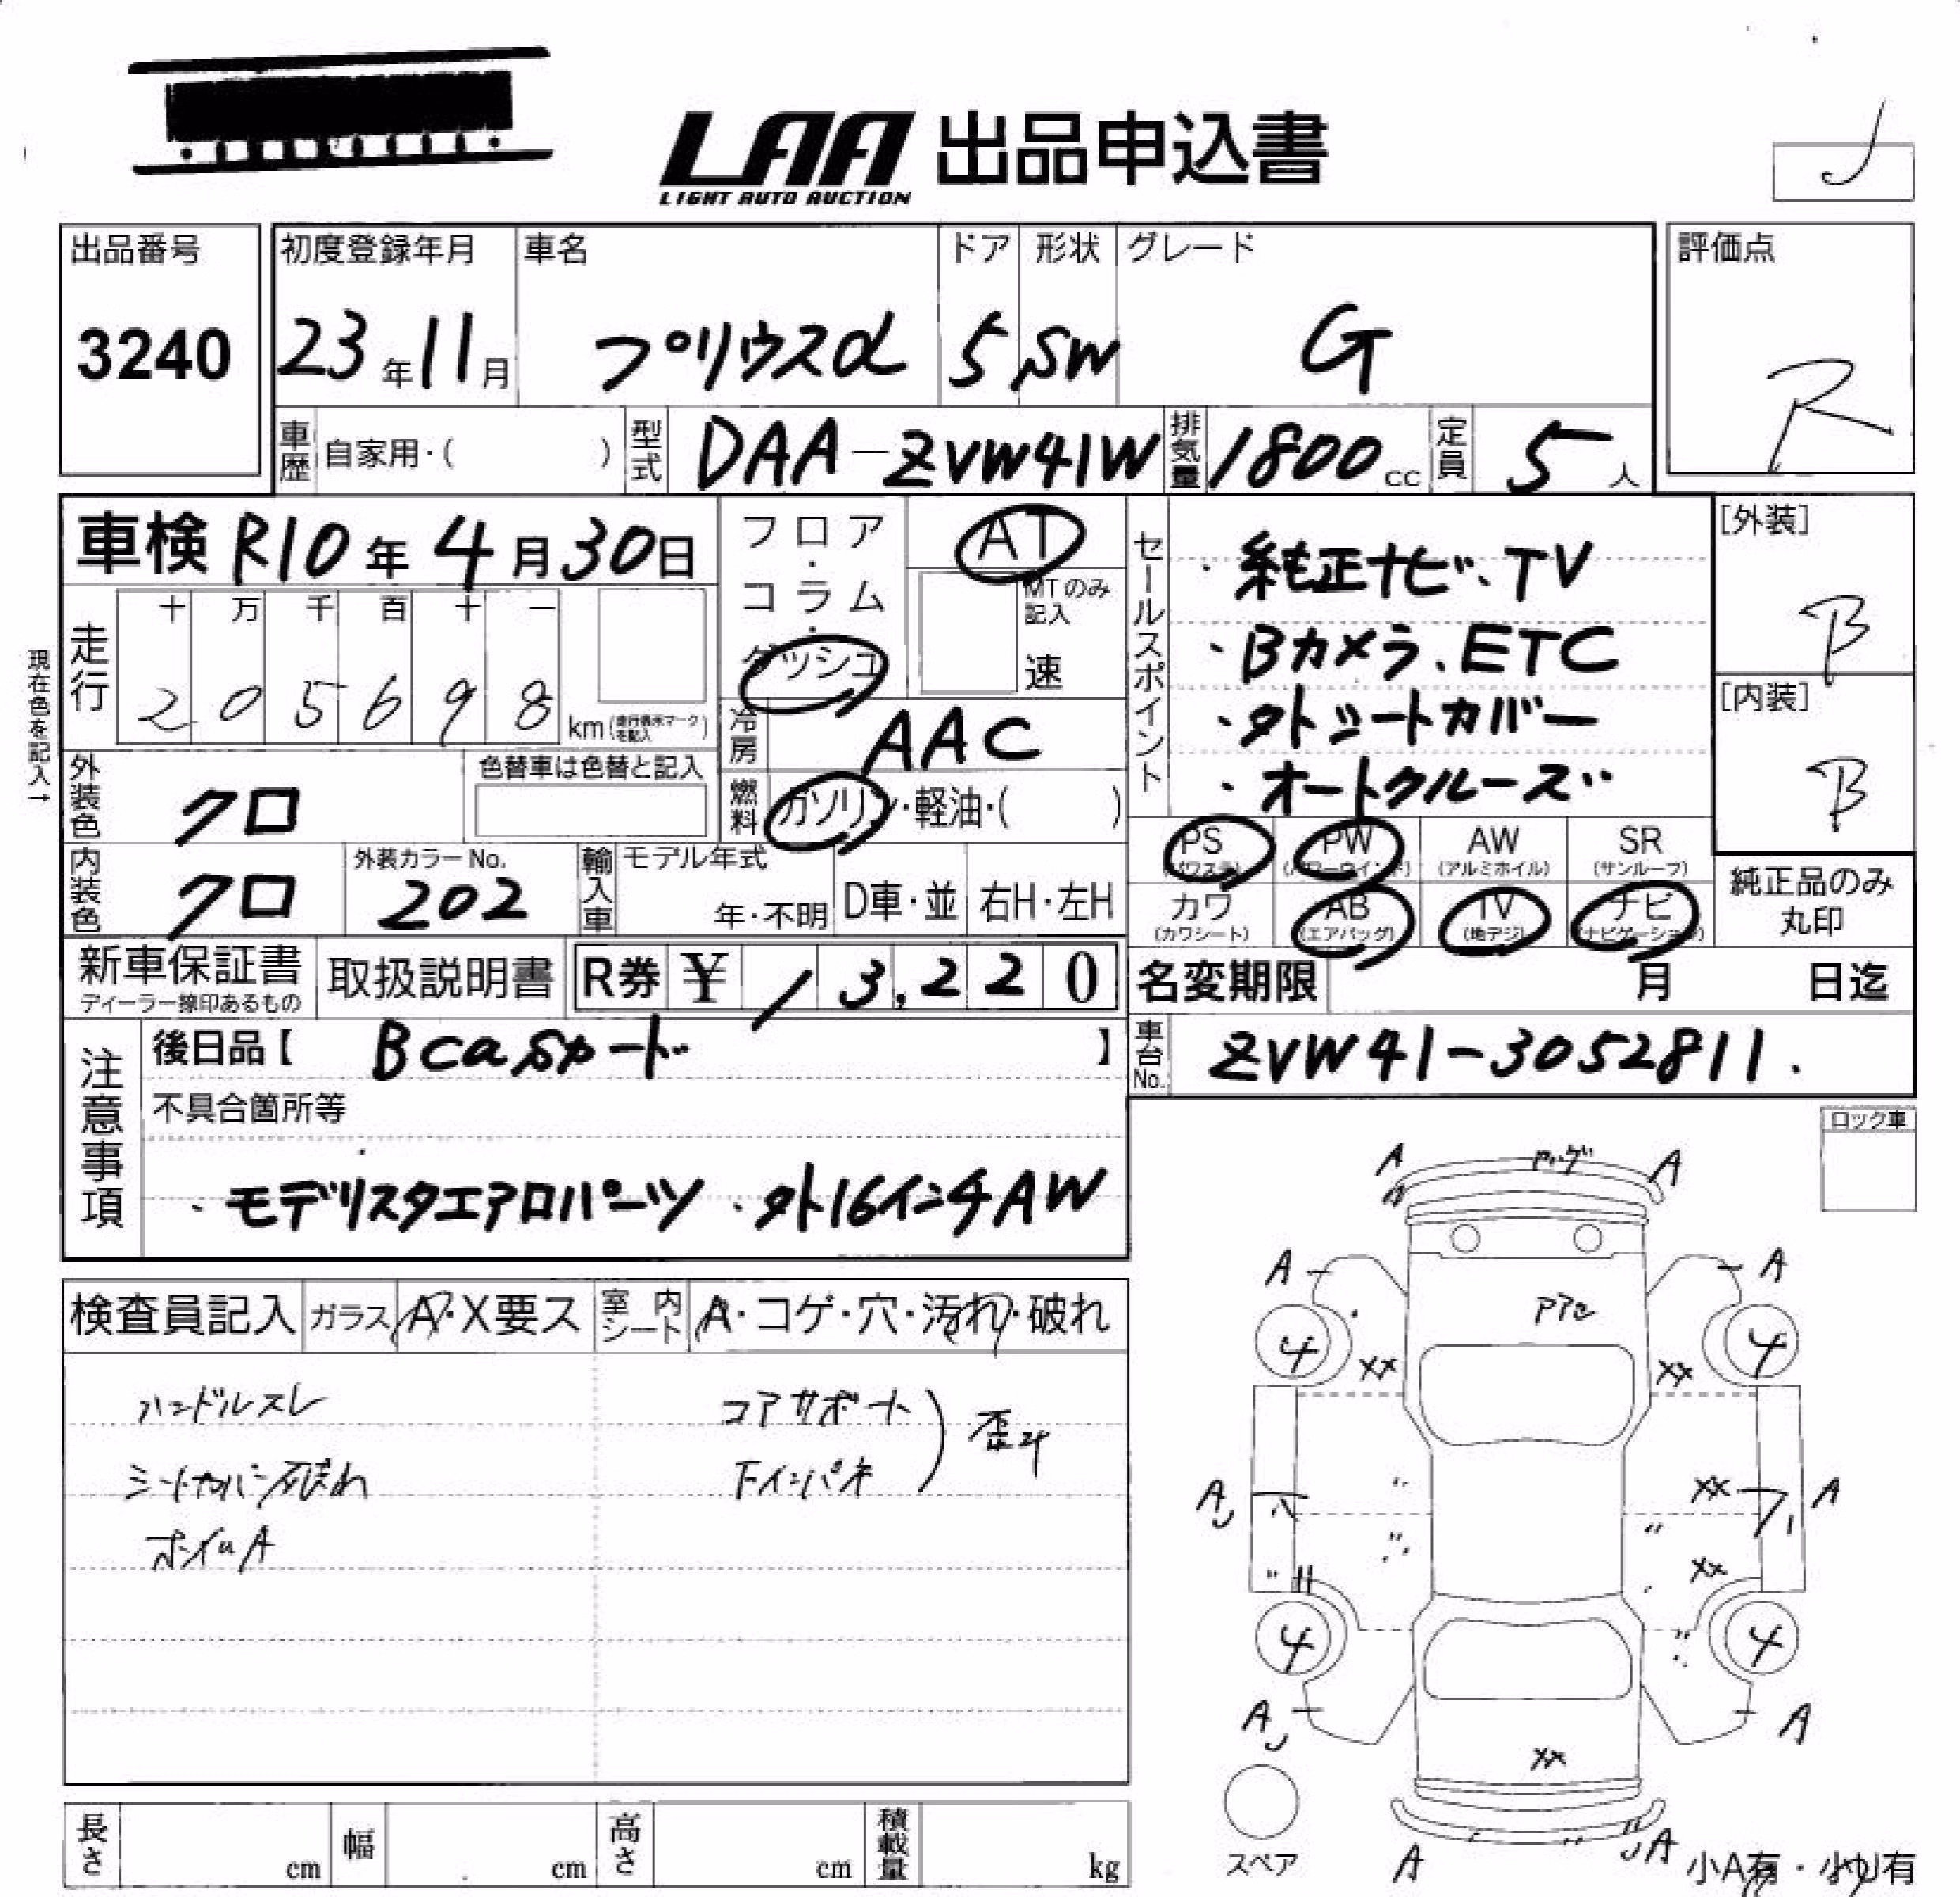 LAA 出品申込書
LIGHT AUTO AUCTION
出品番号
3240
初度登録年月
23年11月
車名
プリウスα
ドア
5
形状
SW
グレード
G
評価点
R
車歴 自家用・( )
型式 DAA-ZVW41W
排気量 1800cc
定員 5人
車検 R10年4月30日
フロア・コラム・ダッシュ
AT
MTのみ記入
速
セールスポイント
・純正ナビ、TV
・Bカメラ、ETC
・外シートカバー
・オートクルーズ
[外装]
B
[内装]
B
現在色を記入→
走行
十 万 千 百 十 一
2 0 5 6 9 8 km(走行表示マークを記入)
冷房 AAC
燃料 ガソリン・軽油・( )
外装色 クロ
色替車は色替と記入
内装色 クロ
外装カラーNo.
202
輸入車
モデル年式
年・不明
D車・並
右H・左H
PS (パワステ)
PW (パワーウインド)
AW (アルミホイル)
SR (サンルーフ)
カワ (カワシート)
AB (エアバッグ)
TV (地デジ)
ナビ (ナビゲーション)
純正品のみ丸印
新車保証書
ディーラー捺印あるもの
取扱説明書
R券 ¥13,220
名変期限 月 日迄
車台No. ZVW41-3052811.
注意事項
後日品【 Bcasカード 】
不具合箇所等
・モデリスタエアロパーツ ・外16インチAW
ロック車
検査員記入
ガラス A・X要ス
室内シート A・コゲ・穴・汚れ・破れ
ハンドルスレ
シートカバー破れ
ホイールA
コアサポート
下インパネ
歪み
A A
A A
4 4
XX XX
A XX A
XX
4 4
A A
XX
A A
スペア
小A有・小U有
長さ cm
幅 cm
高さ cm
積載量 kg